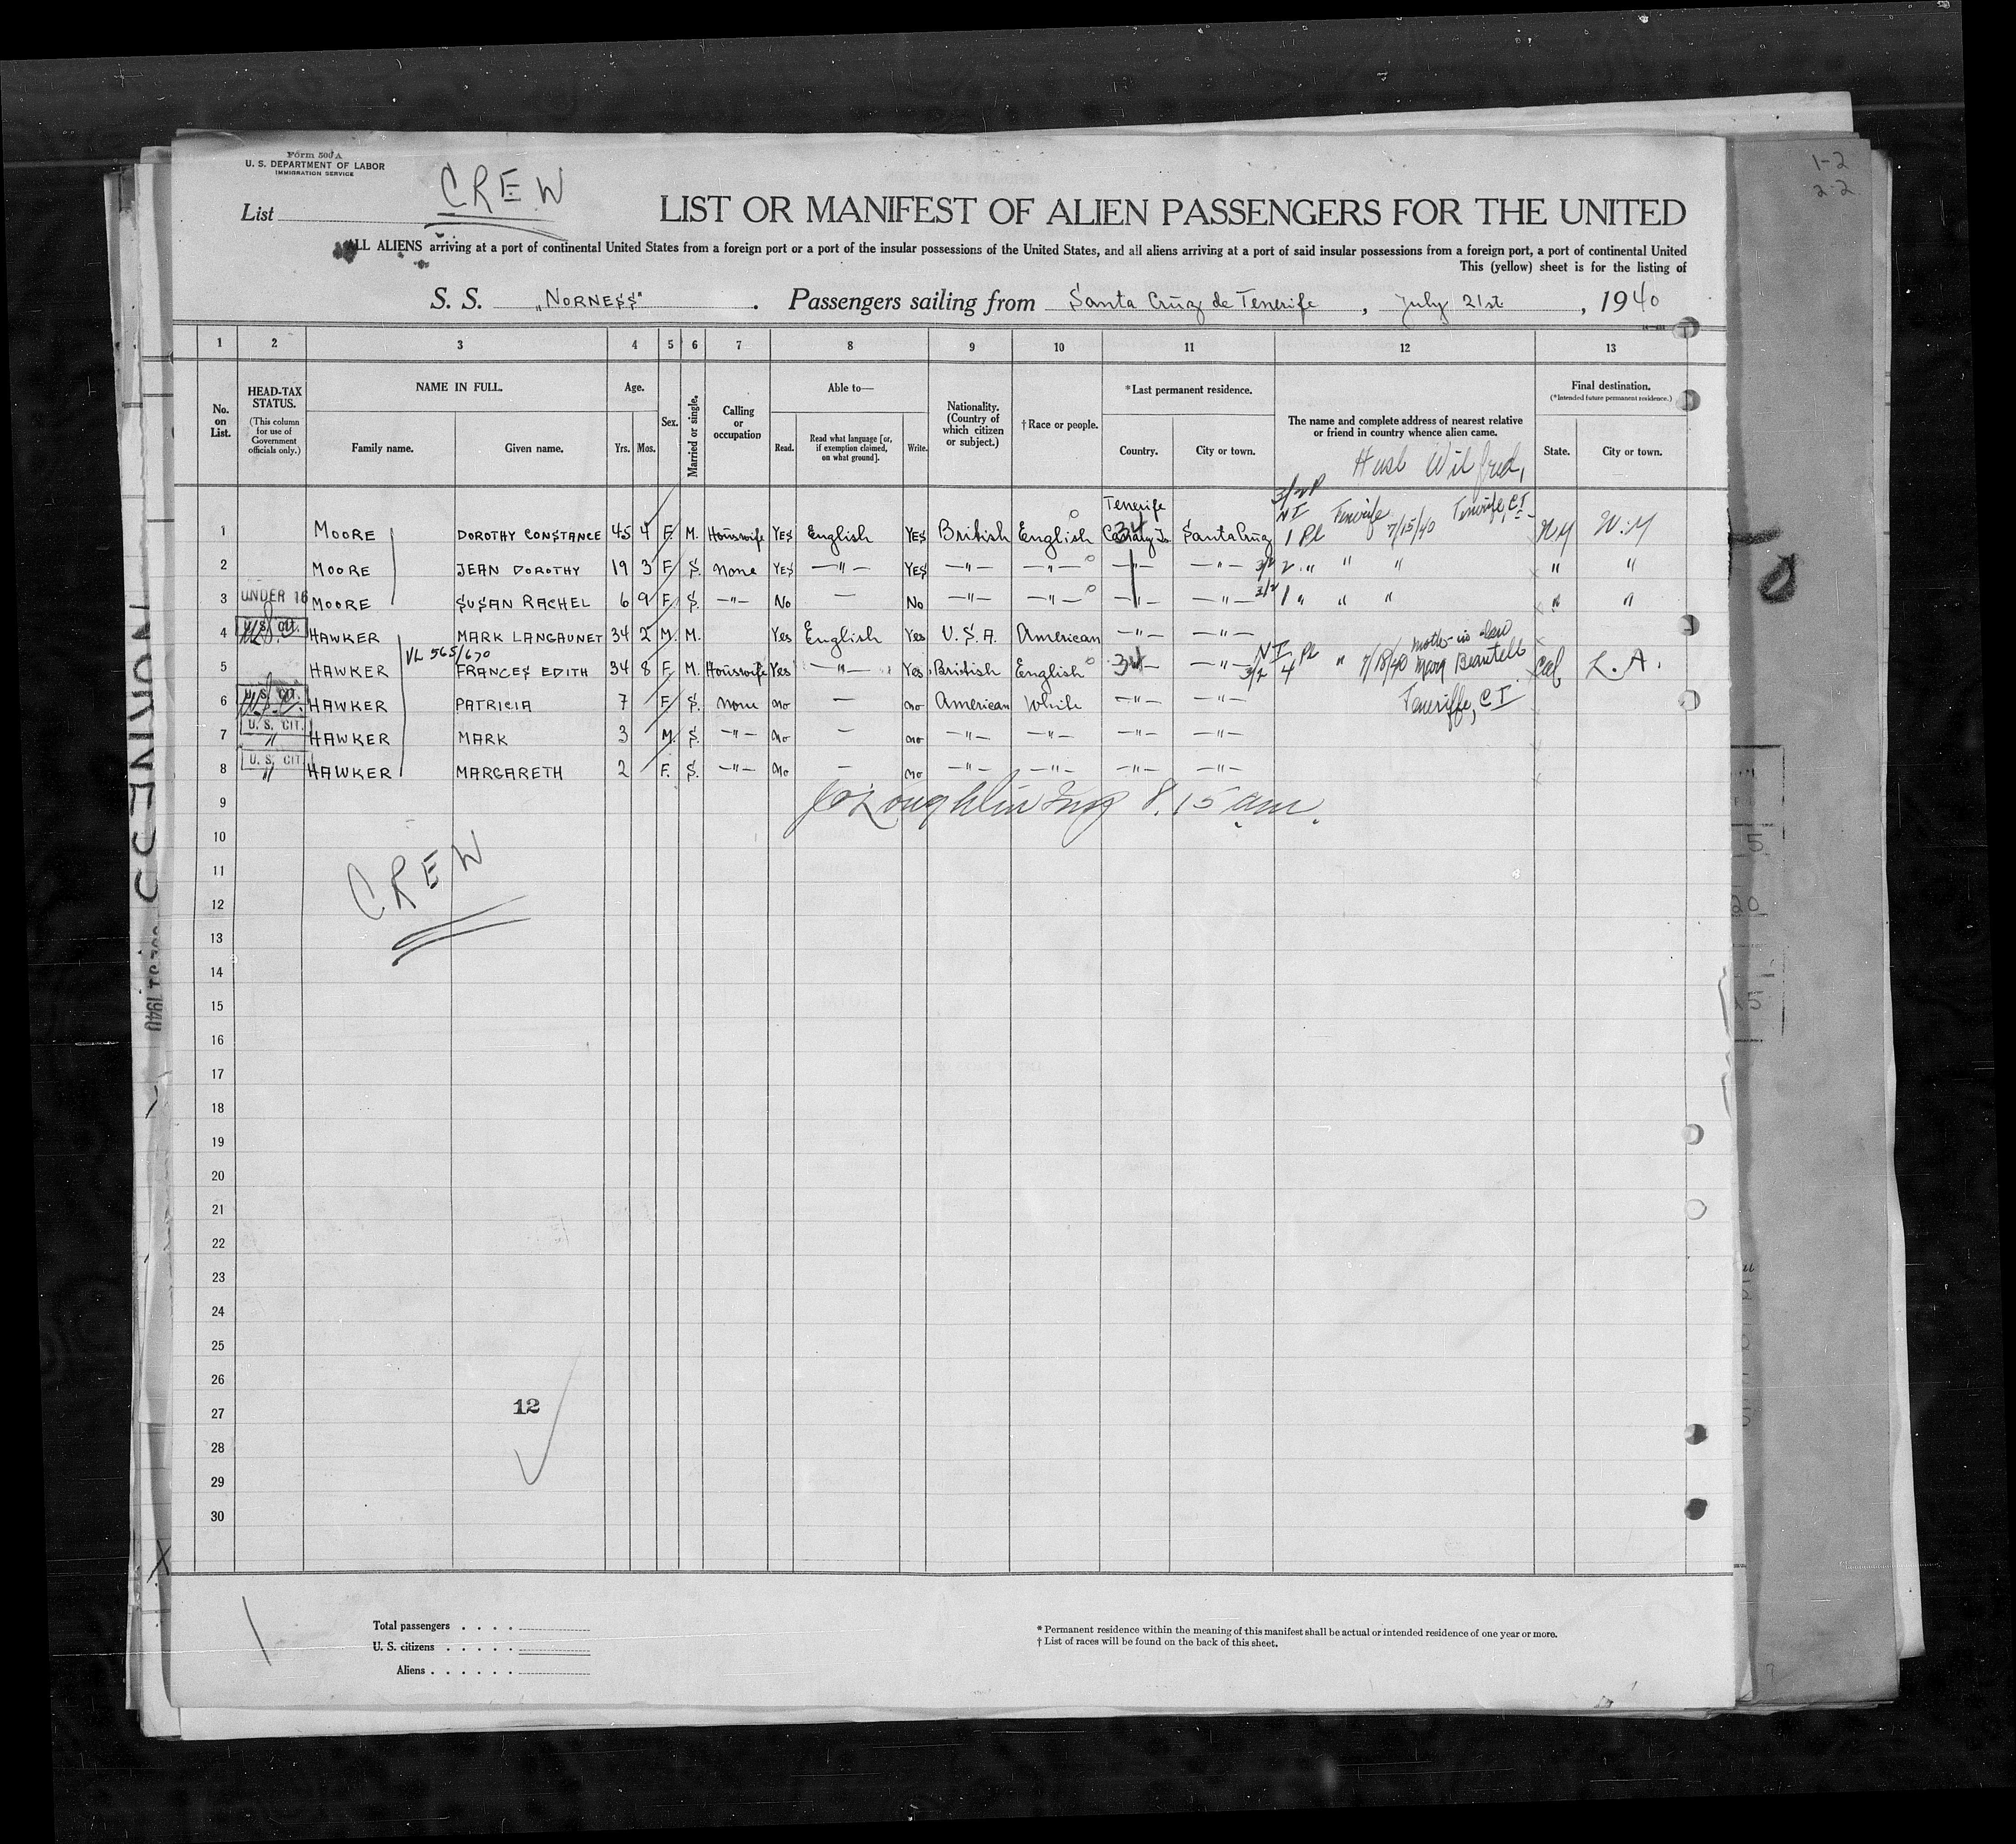 Form 500 A
U. S. DEPARTMENT OF LABOR
IMMIGRATION SERVICE
CREW
1-2
2-2
List
LIST OR MANIFEST OF ALIEN PASSENGERS FOR THE UNITED
ALL ALIENS arriving at a port of continental United States from a foreign port or a port of the insular possessions of the United States, and all aliens arriving at a port of said insular possessions from a foreign port, a port of continental United
This (yellow) sheet is for the listing of
S. S. "NORNESS". Passengers sailing from Santa Cruz de Tenerife, July 21st, 1940
1 2 3 4 5 6 7 8 9 10 11 12 13
No. on List.
HEAD-TAX STATUS.
(This column for use of Government officials only.)
NAME IN FULL.
Family name. Given name.
Age.
Yrs. Mos.
Sex.
Married or single.
Calling or occupation
Able to—
Read. Read what language [or, if exemption claimed, on what ground]. Write.
Nationality. (Country of which citizen or subject.)
† Race or people.
* Last permanent residence.
Country. City or town.
The name and complete address of nearest relative or friend in country whence alien came.
Final destination.
(* Intended future permanent residence.)
State. City or town.
Husb Wilfred,
Tenerife, C I
1 MOORE DOROTHY CONSTANCE 45 4 F. M. Housewife YES English YES British English Tenerife Canary Is Santa Cruz NI 1 Pl Tenerife 7/15/40 N.Y N.Y
2 MOORE JEAN DOROTHY 19 3 F. S. None YES —"— YES —"— —"— —"— —"— 3/2 2 " " " " "
3 UNDER 16 MOORE SUSAN RACHEL 6 9 F. S. —"— No — No —"— —"— —"— —"— 3/2 1 " " " " "
4 U. S. CIT. HAWKER MARK LANGAUNET 34 2 M. M. Yes English Yes U.S.A. American —"— —"—
VL 565/670
5 HAWKER FRANCES EDITH 34 8 F. M. Housewife Yes —"— Yes British English 34 —"— 3/2 NI 4 Pl " 7/18/40 mother-in-law Mary Beautell Teneriffe, C I Cal L. A.
6 U. S. CIT. HAWKER PATRICIA 7 F. S. None no — no American White —"— —"—
7 U. S. CIT. " HAWKER MARK 3 M. S. —"— no — no —"— —"— —"— —"—
8 U. S. CIT. " HAWKER MARGARETH 2 F. S. —"— No — no —"— —"— —"— —"—
9
8.15 am.
10
CREW
11
12
13
14
15
16
17
18
19
20
21
22
23
24
25
26
27
12
28
29
30
Total passengers
U. S. citizens
Aliens
* Permanent residence within the meaning of this manifest shall be actual or intended residence of one year or more.
† List of races will be found on the back of this sheet.